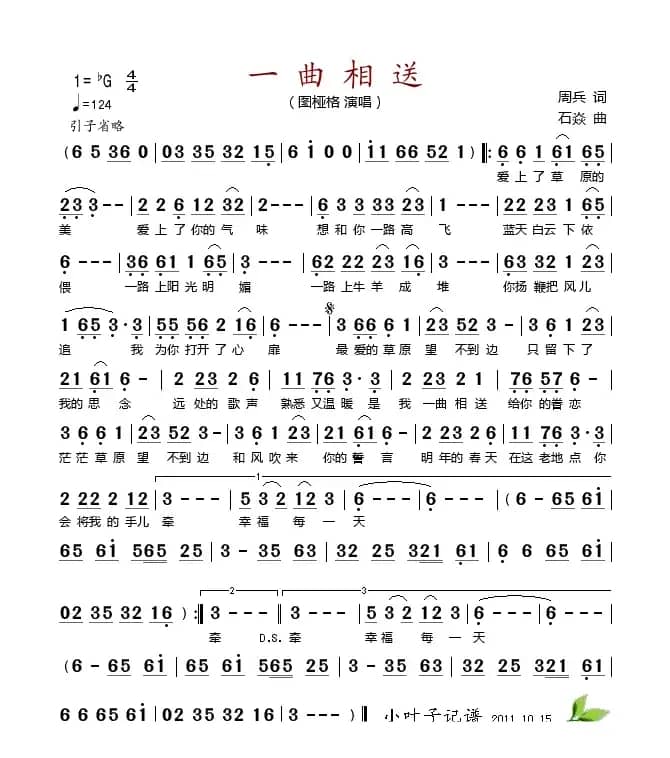 一曲相送
1=♭G 4/4
♩=124
（图桠格 演唱）
周兵 词
石焱 曲
引子省略
( 6 5 36 0 | 03 35 32 15 | 6 i 0 0 | i1 66 52 1 ) ‖: 6 6 1 61 65 |
爱 上 了 草 原的
23 3 - - | 2 2 6 12 32 | 2 - - - | 6 3 3 33 23 | 1 - - - | 22 23 1 65 |
美 爱 上 了 你的 气 味 想 和 你 一路 高 飞 蓝天 白云 下 依
6 - - - | 36 61 1 65 | 3 - - - | 66 12 23 16 | 2 - - - | 33 32 1 23 |
偎 一路 上阳 光 明 媚 一路 上牛 羊 成 堆 你扬 鞭把 风 儿
1 65 3 · 3 | 55 56 2 16 | 6 - - - | 3 66 6 1 | 23 52 3 - | 6 1 2 23 |
追 我 为你 打开 了 心 扉 最 爱的 草 原 望 不到 边 只 留 下 了
21 61 6 - | 2 23 2 6 | 11 76 3 · 3 | 6 1 2 12 | 76 57 6 - |
我的 思 念 远 处的 歌 声 熟悉 又温 暖 是 我 一曲 相 送 给你 的眷 恋
3 6 6 1 | 23 52 3 - | 3 6 1 23 | 21 61 6 - | 2 23 2 6 | 11 76 3 · 3 |
茫 茫 草 原 望 不到 边 和 风 吹 来 你的 誓 言 明 年的 春 天 在这 老地 点 你
1
2 22 2 12 | 3 - - - | 5 3 2 12 3 | 6 - - - | 6 - - - | ( 6 - 65 6i |
会 将我 的 手儿 牵 幸 福 每 一 天
65 6i 565 25 | 3 - 35 63 | 32 25 321 61 | 6 6 65 6i |
2 3
02 35 32 16 ) :‖ 3 - - - ‖ 3 - - - | 5 3 2 12 3 | 6 - - - | 6 - - - |
牵 D.S. 牵 幸 福 每 一 天
( 6 - 65 6i | 65 6i 565 25 | 3 - 35 63 | 32 25 321 61 |
6 6 65 6i | 02 35 32 16 | 3 - - ) ‖ 小叶子记谱 2011.10.15